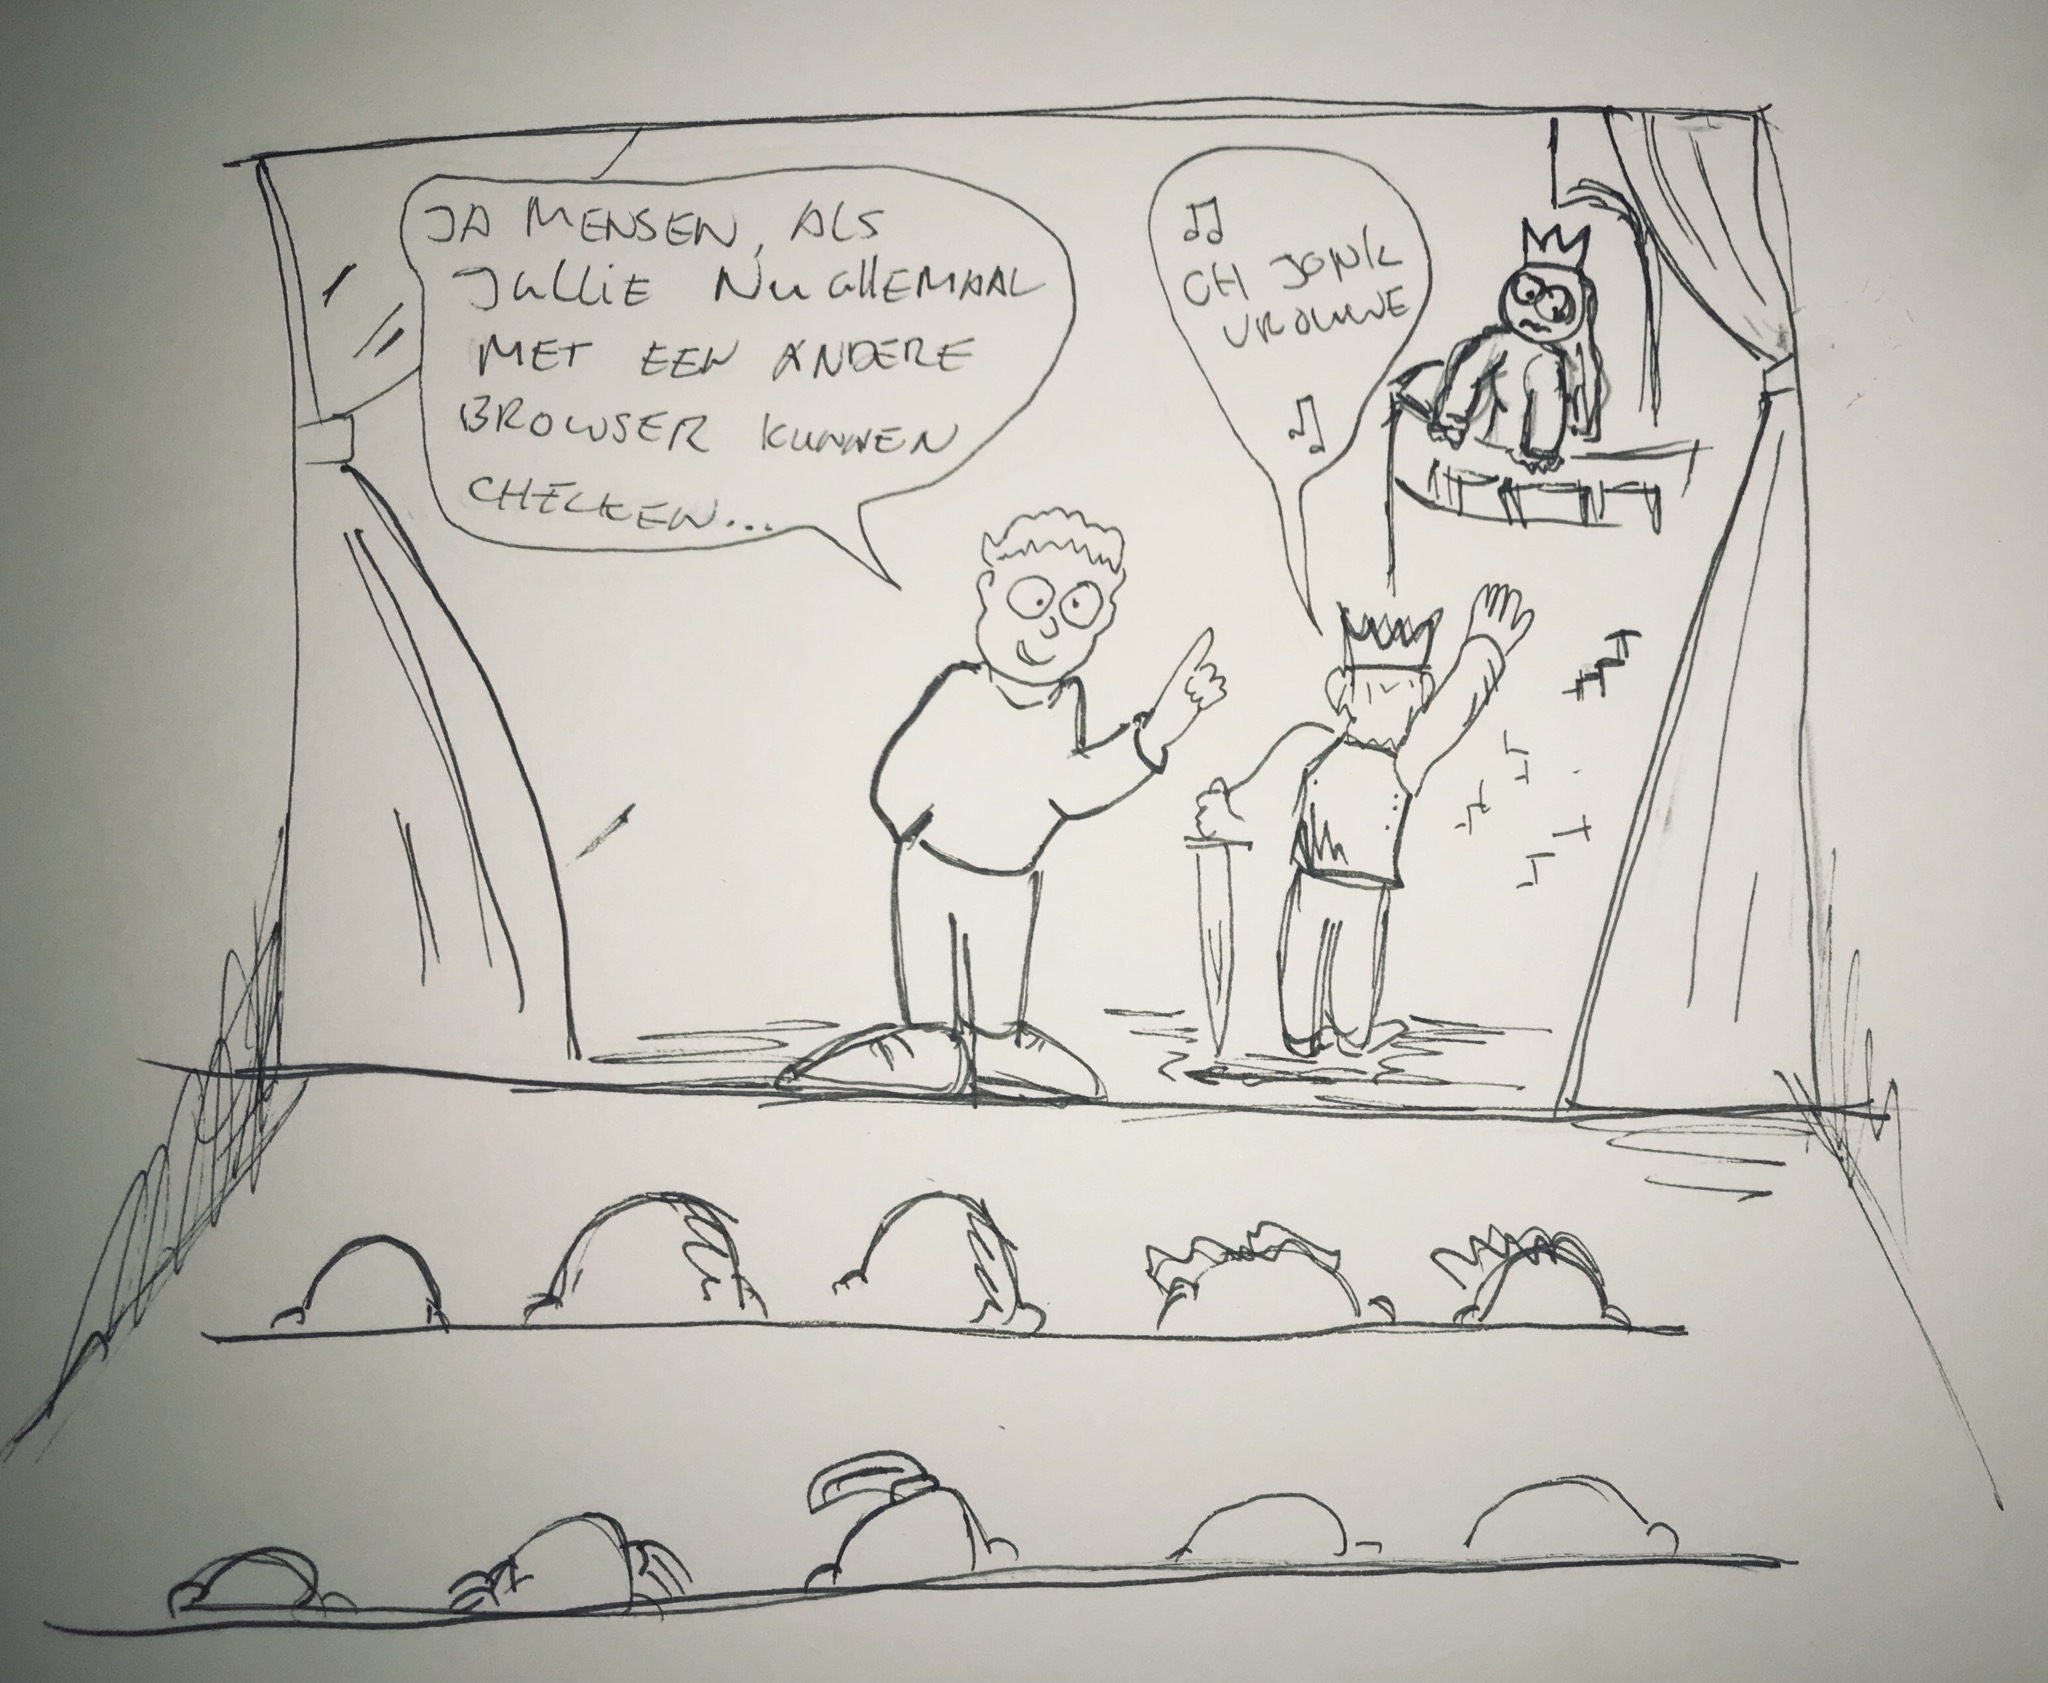 JA MENSEN, ALS
JULLIE NU ALLEMAAL
MET EEN ANDERE
BROWSER KUNNEN
CHECKEN...
OH JONK
VROUWE